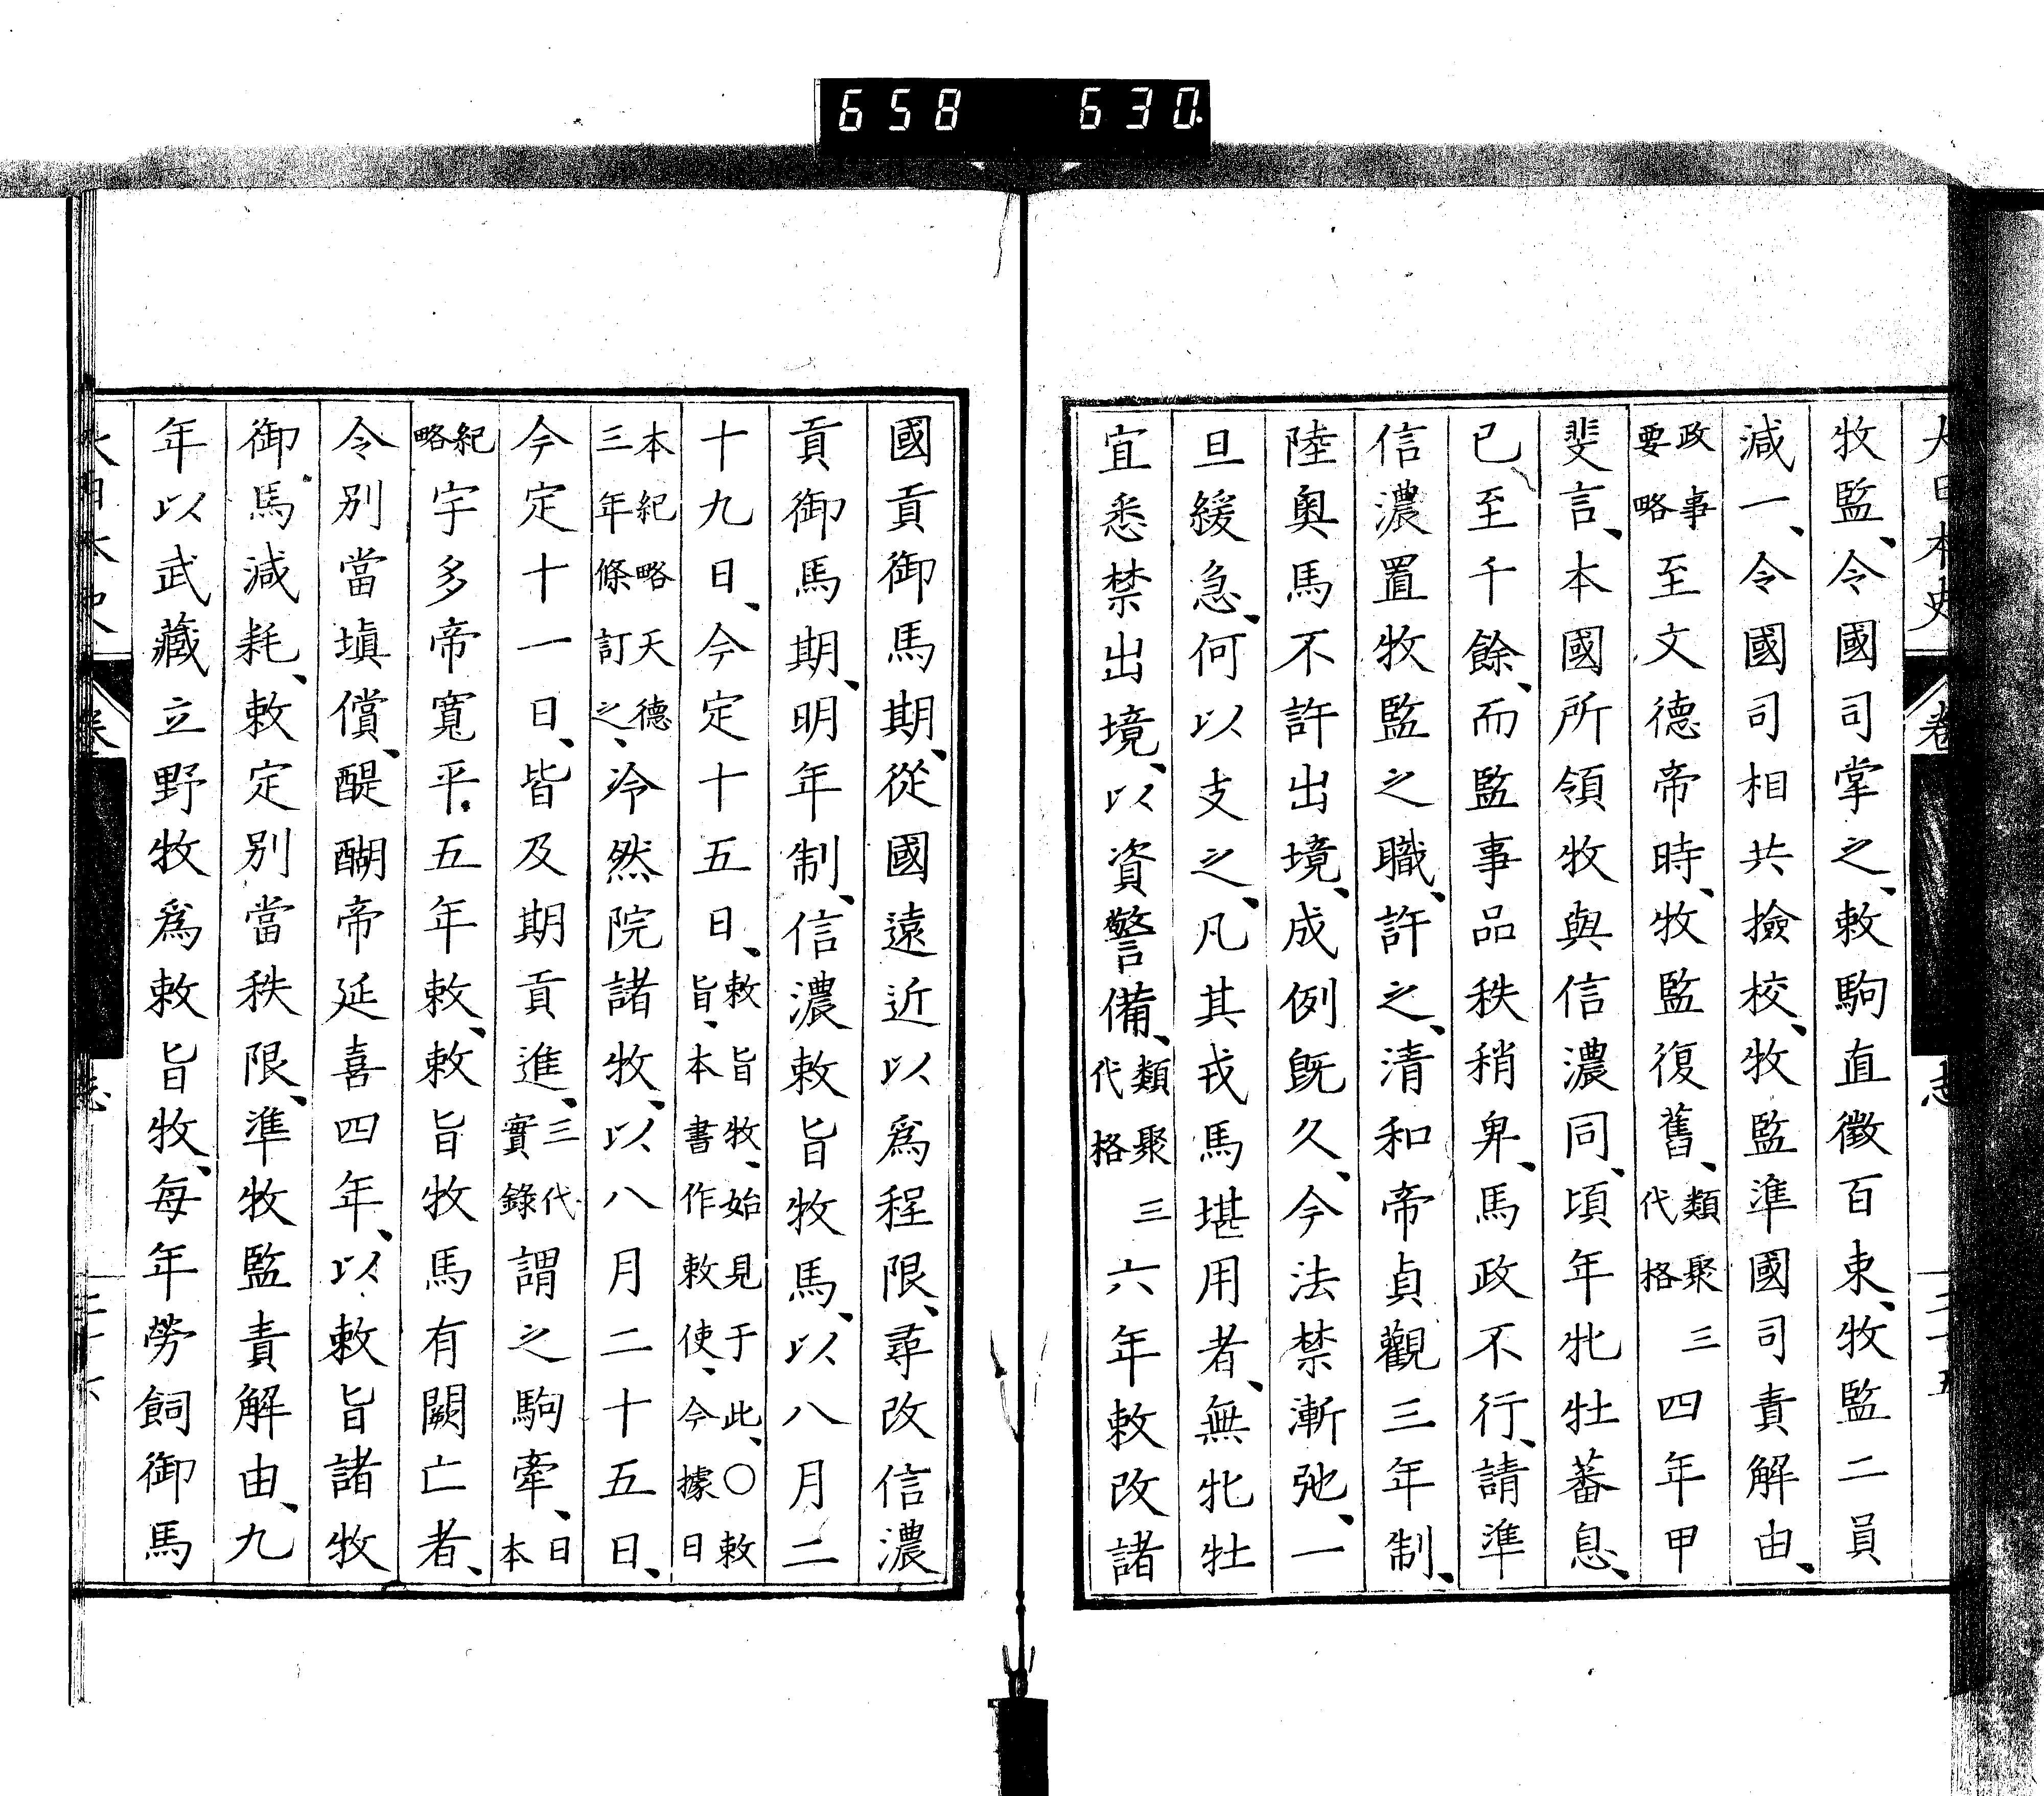 658 630
大日本史 卷 志 二十五
牧監、令國司掌之、敕駒直徵百束、牧監二員
減一、令國司相共撿校、牧監準國司責解由、
政事要略至文德帝時、牧監復舊、類聚三代格四年甲
斐言、本國所領牧與信濃同、頃年牝牡蕃息、
已至千餘、而監事品秩稍卑、馬政不行、請準
信濃置牧監之職、許之、清和帝貞觀三年制、
陸奧馬不許出境、成例旣久、今法禁漸弛、一
旦緩急、何以支之、凡其戎馬堪用者、無牝牡
宜悉禁出境、以資警備、類聚三代格六年敕改諸
國貢御馬期、從國遠近以爲程限、尋改信濃
貢御馬期、明年制、信濃敕旨牧馬、以八月二
十九日、今定十五日、敕旨牧、始見于此、○敕旨、本書作敕使、今據日
本紀略天德三年條訂之、冷然院諸牧、以八月二十五日、
今定十一日、皆及期貢進、三代實錄謂之駒牽、日本
紀略宇多帝寬平五年敕、敕旨牧馬有闕亡者、
令別當塡償、醍醐帝延喜四年、以敕旨諸牧
御馬減耗、敕定別當秩限、準牧監責解由、九
年以武藏立野牧爲敕旨牧、每年勞飼御馬